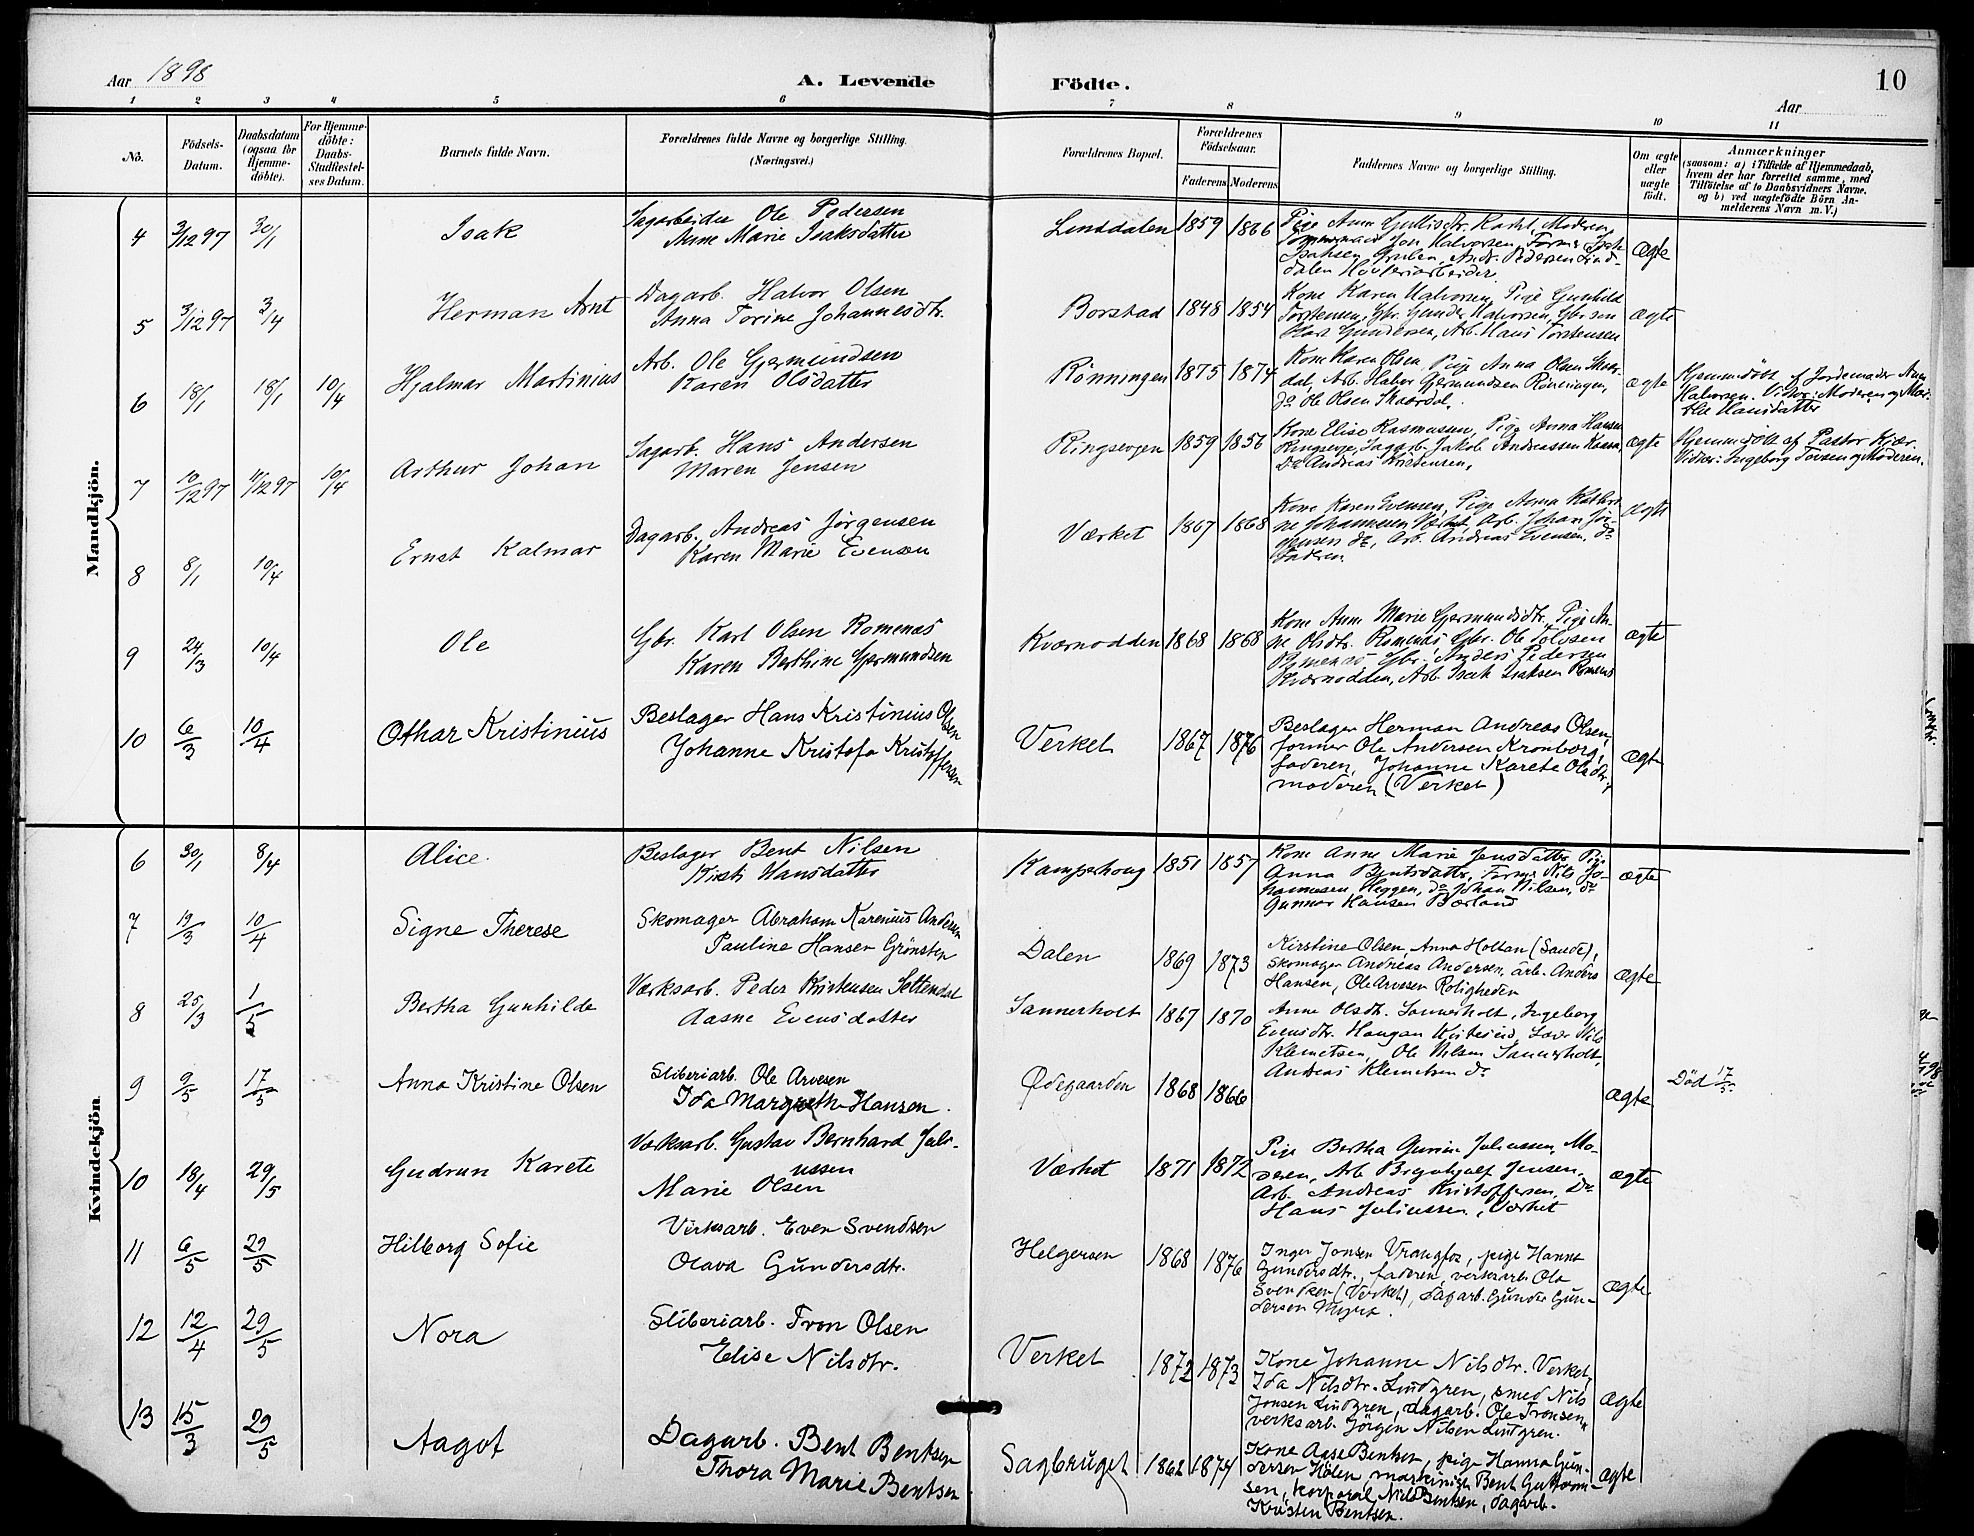 Aar 1898
A. Levende
Födte.
10
Aar
1 2 3 4 5 6 7 8 9 10 11
No.
Födsels-
Datum.
Daabsdatum
(ogsaa for
Hjemme-
döbte).
For Hjemme-
döbte:
Daabs-
Stadfæstel-
ses Datum.
Barnets fulde Navn.
Forældrenes fulde Navne og borgerlige Stilling.
(Næringsvei.)
Forældrenes Bopæl.
Forældrenes
Födselsaar.
Faderens
Moderens
Faddernes Navne og borgerlige Stilling.
Om ægte
eller
uægte
födt.
Anmærkninger
(saasom: a) i Tilfælde af Hjemmedaab,
hvem der har forrettet samme, med
Tilföielse af to Daabsvidners Navne,
og b) ved uægtefödte Börn An-
melderens Navn m. V.)
Mandkjön.
4 3/12 97 30/1 Isak
Sagarbeider Ole Pedersen
Anne Marie Isaksdatter
Linddalen 1859 1866
ægte
5 3/12 97 3/4 Herman Arnt
Dagarb. Halvor Olsen
Anna Torine Johannesdtr.
Borstad 1848 1854
Kone Karen Halvorsen, Pige Gunhild
Torstensen, Gbr. Gunder Halvorsen, Gbr. søn
Gundersen, Arb. Hans Torstensen
ægte
6 18/1 18/1 10/4 Hjalmar Martinius
Arb. Ole Gjermundsen
Karen Olsdatter
Rønningen 1875 1874
Kone Karen Olsen, Pige Anna Olsen Skaar-
dal, Arb. Halvor Gjermundsen Rønningen,
do Ole Olsen Skaardal.
ægte
Hjemmedöbt af Jordemoder Anne
Halvorsen. Vidner: Moderen og
Hansdatter
7 10/12 97 11/12 97 10/4 Arthur Johan
Sagarb. Hans Andersen
Maren Jensen
Ringsevjen 1859 1856
Kone Elise Rasmussen, Pige Anna Hansen
Ringsevje, Sagarb. Jakob Andreassen
Do Andreas Kristensen,
ægte
Hjemmedöbt af Pastor Kjær.
Vidner: Ingeborg Tovsen og Moderen.
8 8/1 10/4 Ernst Kalmar
Dagarb. Andreas Jørgensen
Karen Marie Evensen
Værket 1867 1868
Kone Karen Evensen, Pige Anna Kathri-
ne Johannesen Værket, Arb. Johan Jør-
gensen do, Arb. Andreas Evensen, do
Faderen.
ægte
9 24/3 10/4 Ole
Gbr. Karl Olsen Romenæs
Karen Berthine Gjermundsen
Kværnodden 1868 1868
Kone Anne Marie Gjermundsdtr, Pige An-
ne Olsdtr. Romenæs, Gbr. Ole Tolvsen
Romenæs, Gbr. Anders Pedersen
Kværnodden, Arb. Isak Isaksen Romenæs
ægte
10 6/3 10/4 Othar Kristinius
Beslager Hans Kristinius Olsen
Johanne Kristofa Kristoffersen
Verket 1867 1876
Beslager Herman Andreas Olsen,
former Ole Andersen Kronborg,
faderen, Johanne Karete Olsdtr.,
moderen (Verket)
ægte
Kvindekjön.
6 30/1 8/4 Alice
Beslager Bent Nilsen
Kirsti Hansdatter
Kamperhoug 1851 1857
Kone Anne Marie Jensdatter, Pige
Anna Bentsdatter, Former Nils Jo-
hannesen, Heggen, do Johan Nilsen, do
Gunnar Hansen Bærland
ægte
7 19/3 10/4 Signe Therese
Skomager Abraham Karenius Andersen
Pauline Hansen Grønsten
Dalen 1869 1873
Kirstine Olsen, Anna Holtan (Saude),
skomager Andreas Andersen, arb. Anders
Hansen, Ole Arvesen Roligheden
ægte
8 25/3 1/5 Bertha Gunhilde
Værksarb. Peder Kristensen Settemdal
Aasne Evensdatter
Sannerholt 1867 1870
Anne Olsdtr. Sannerholt, Ingeborg
Evensdtr. Haugan, Nils
Klemetsen, Ole Nilsen Sannerholt,
Andreas Klemetsen do
9 9/5 17/5 Anna Kristine Olsen
Sliberiarb. Ole Arvesen
Ida Margrethe Hansen.
Ødegaarden 1868 1866
ægte
Död 17/5.
10 18/4 29/5 Gudrun Karete
Værksarb. Gustav Bernhard Juli-
ussen
Marie Olsen
Værket 1871 1872
Pige Bertha Gurine Juliussen, Mo-
deren, Arb. Brynhjelf Jensen,
Arb. Andreas Kristoffersen, Do
Hans Juliussen, Værket
ægte
11 6/5 29/5 Hilborg Sofie
Verksarb. Even Svendsen
Olava Gundersdtr.
Helgersen 1868 1876
Inger Jonsen Vrangfos, pige Hanna
Gundersdtr., faderen, verksarb. Ole
Svendsen (Verket), dagarb. Gunder Gun-
dersen Myra.
ægte
12 12/4 29/5 Nora
Sliberiarb. Tron Olsen
Elise Nilsdtr.
Verket 1872 1873
Kone Johanne Nilsdtr. Verket,
Ida Nilsdtr. Lindgren, smed Nils
Jonsen Lindgren, dagarb. Ole Tronsen,
verksarb. Jörgen Nilsen Lindgren.
ægte
13 15/3 29/5 Aagot
Dagarb. Bent Bentsen
Thora Marie Bentsen
Sagbruget 1862 1874
Kone Aase Bentsen, pige Hanna Gun-
dersen Hölen, maskinist Bent Guttorm-
sen, korporal Nils Bentsen, dagarb.
Kristen Bentsen.
ægte